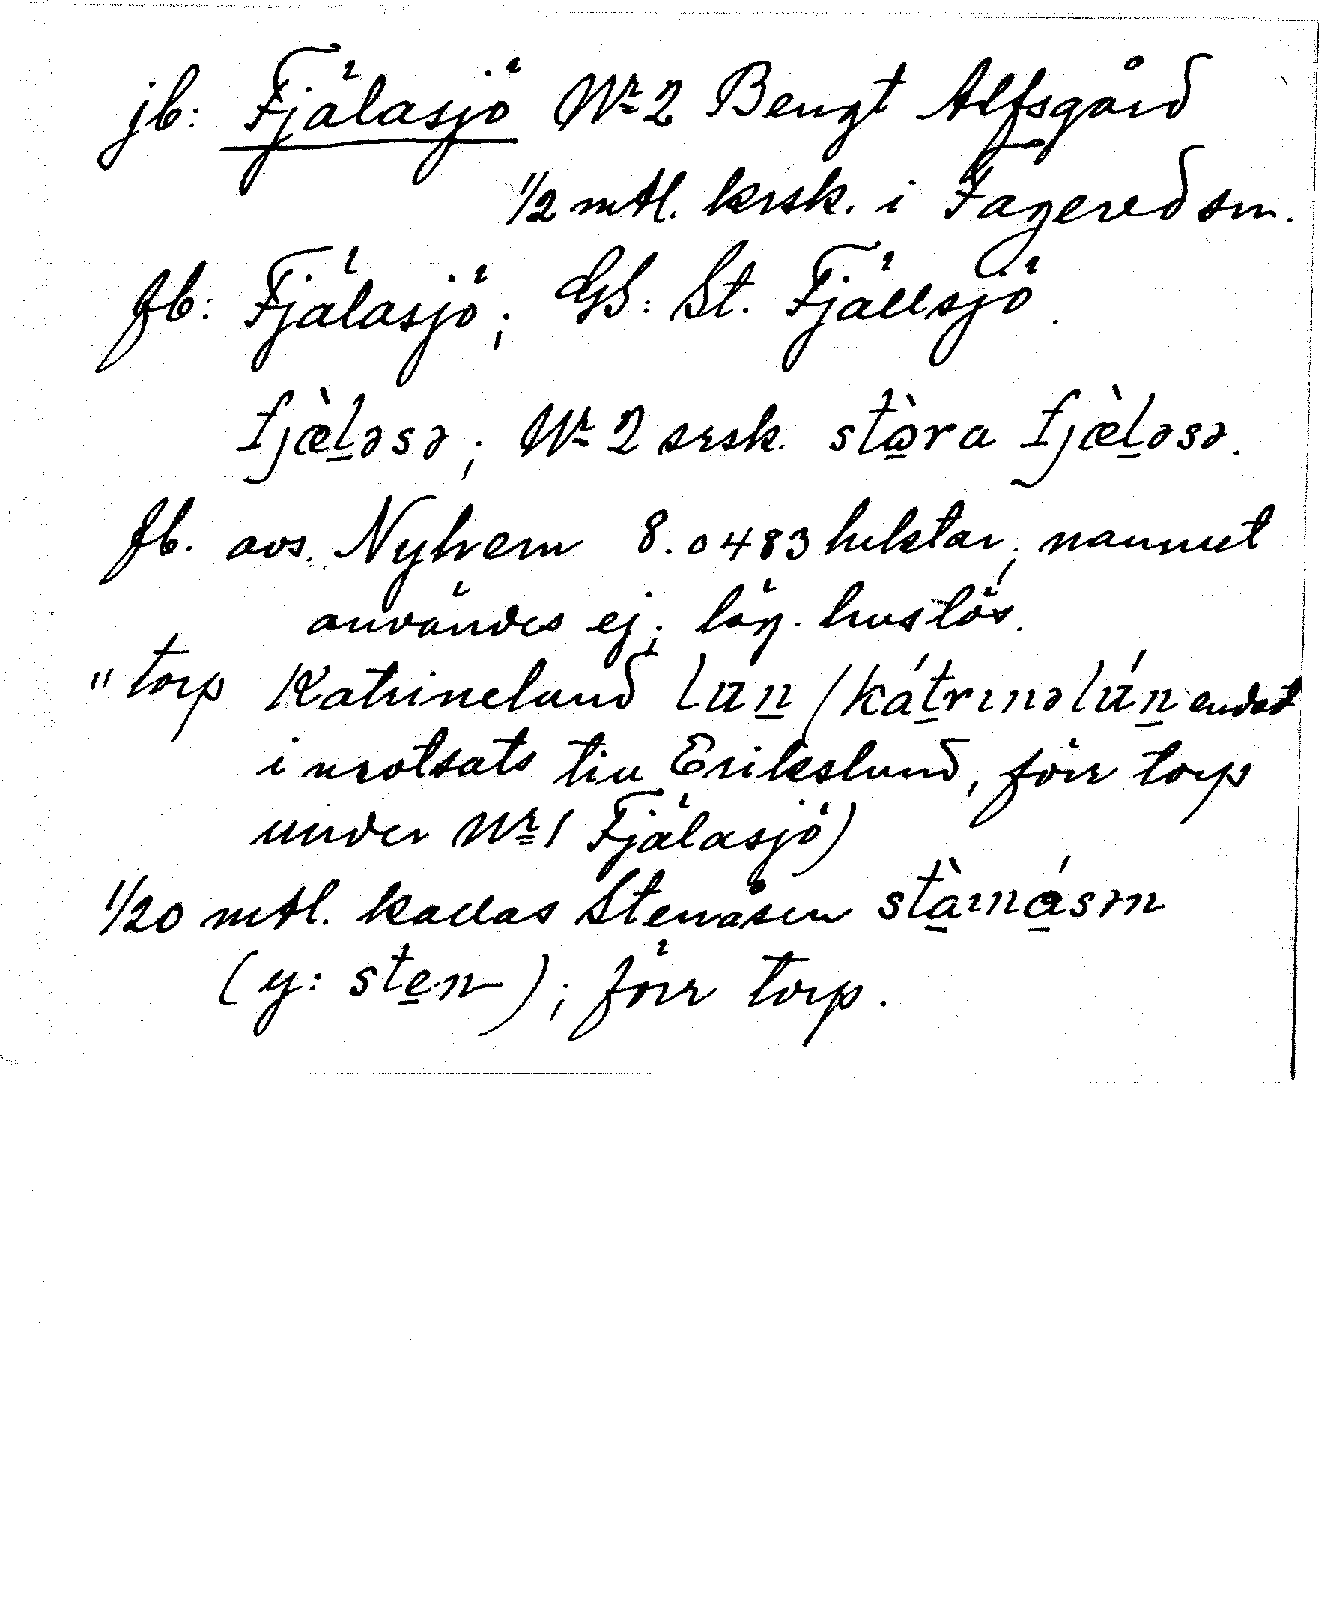 jb: Fjälasjö Nr 2 Bengt Alfsgård
1/2 mtl. krsk. i Fagered sn.
fb: Fjälasjö; GS: St. Fjällsjö.
fjæ̀ḻəsə; Nr 2 srsk. stò̱ra fjæ̀ḻəsə.
fb. avs. Nyhem 8.0483 hektar; namnet
användes ej; läg. huslös.
" torp Katrinelund lun̲ / ká̱trɩnəlún̲ endast
i motsats till Erikslund, förr torp
under Nr 1 Fjälasjö)
1/20 mtl. kallas Stenåsen stà̱ɩná̱sən
(y: ste̲n); förr torp.